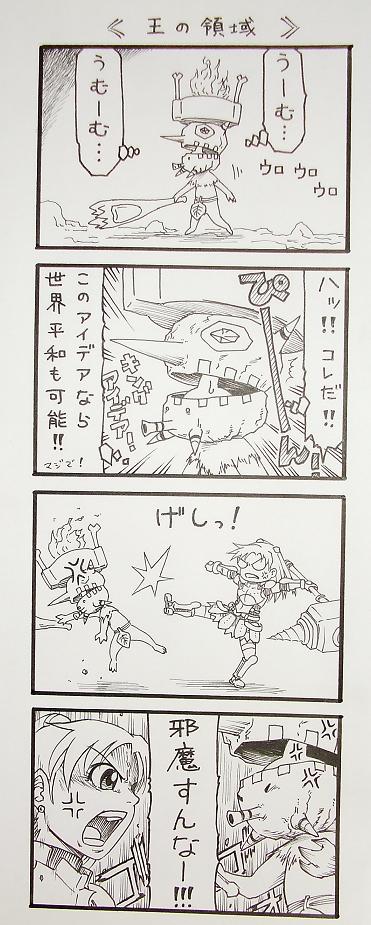 ≪ 王の領域 ≫
うーむ…
うむーむ…
ウロ ウロ ウロ
ハッ!! コレだ!!
ぴーん!
キング アイデアー!
このアイデアなら
世界平和も可能!!
マジで!
げしっ!
邪魔すんなー!!!